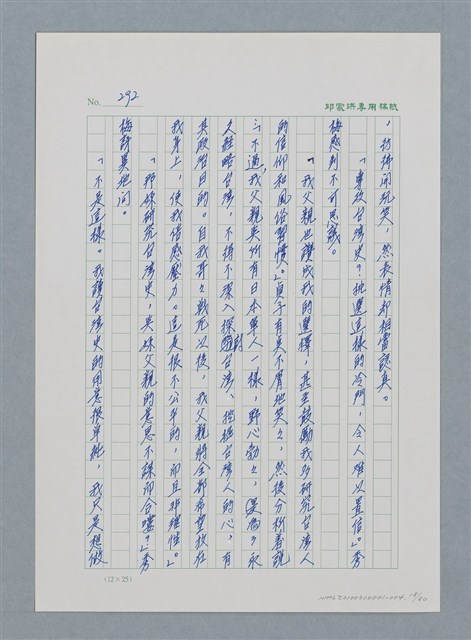 No. 292
邱家洪專用稿紙
，彷彿開玩笑，然表情却相當認真。
「專攻台灣史？挑選這樣的冷門，令人難以置信。」秀
梅感到不可思議。
「我父親也讚成我的選擇，甚至鼓勵我多研究台灣人
的信仰和風俗習慣。」貞子有點不屑地笑笑，然後分析着說
：「不過，我父親與所有日本軍人一樣，野心勃勃，還為了永
久經略台灣，不得不深入探討台灣、挖掘台灣人的心，有
其政治目的。自我哥哥戰死以後，我父親將全部希望放在
我身上，使我倍感壓力。這是很不公平的，而且非理性。」
「那妳研究台灣史，與妳父親的意思不謀而合囉？」秀
梅訝異地問。
「不是這樣。我讀台灣史的用意很單純，我只是想做
(12×25)